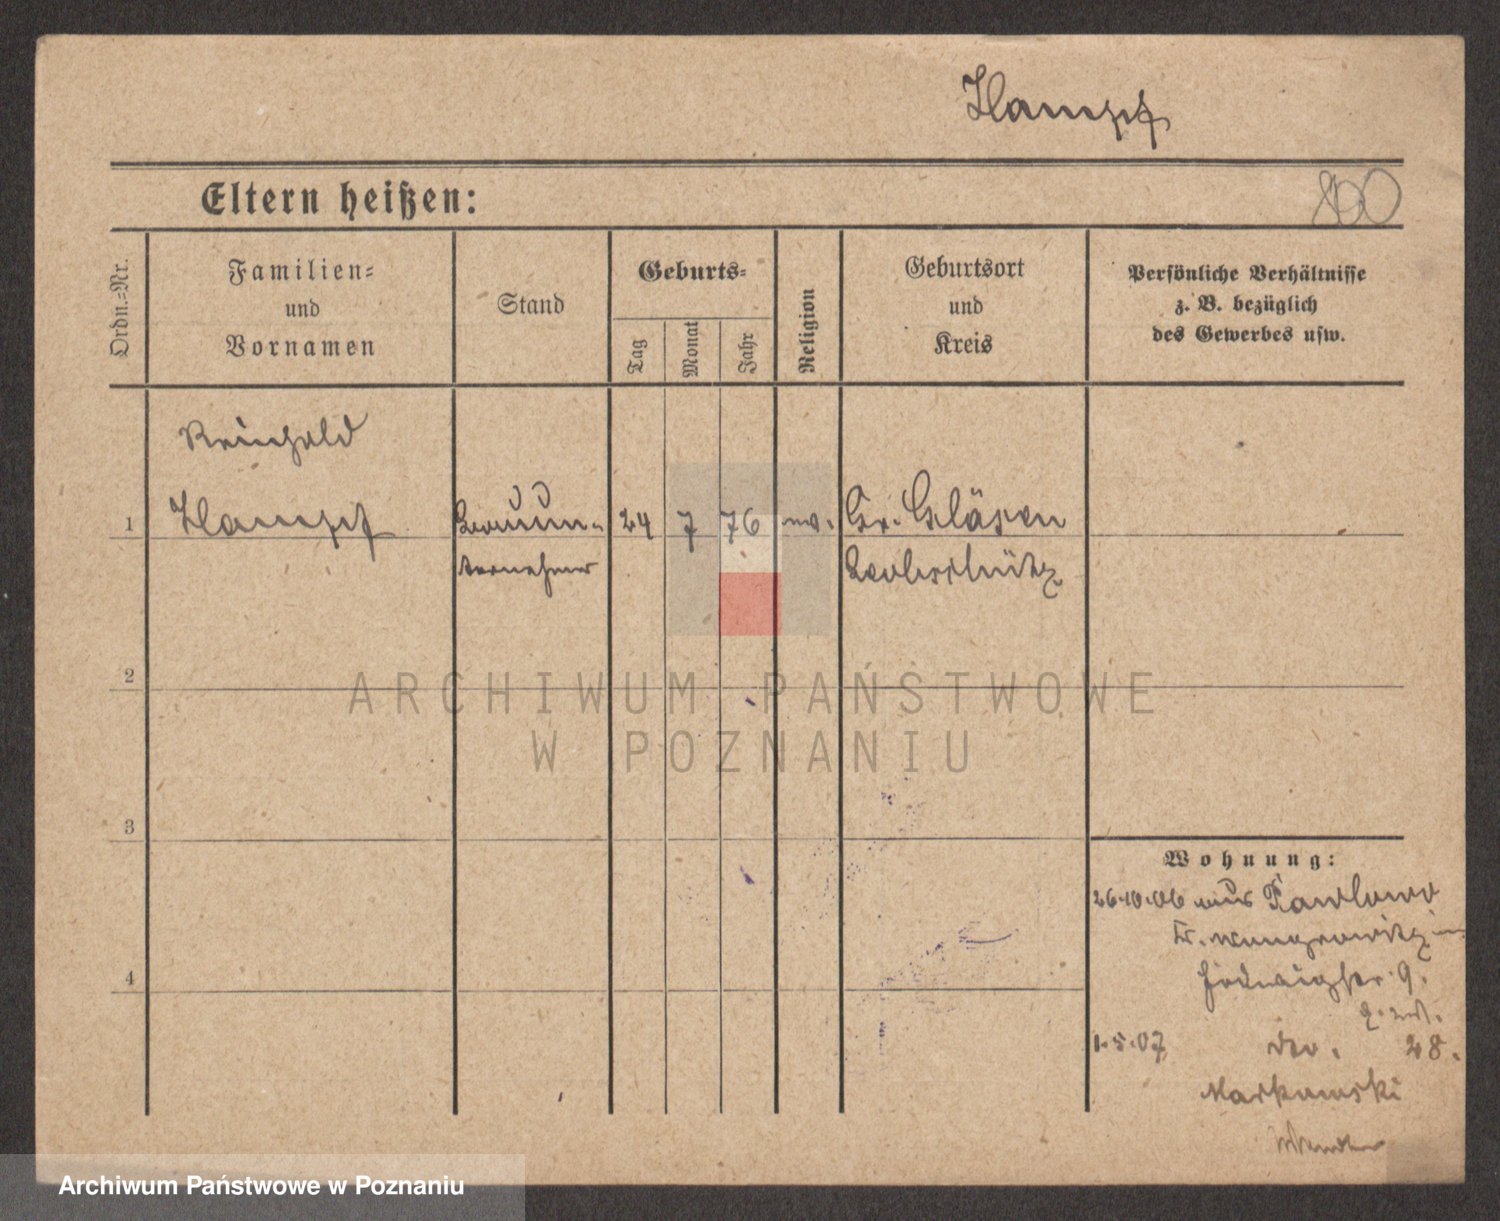 Hampf
Eltern heißen:
Ordn.=Nr.
Familien=
und
Vornamen
Stand
Geburts=
Tag
Monat
Jahr
Religion
Geburtsort
und
Kreis
Persönliche Verhältnisse
z. B. bezüglich
des Gewerbes usw.
Reinhold
1 Hampf Bauun= 24 7 76 ev. Gr. Gläsen
ternehmer Leobschütz
2
ARCHIWUM PAŃSTWOWE
W POZNANIU
3
Wohnung:
26.10.06 aus Pawlowo
Kr. Wongrowitz in
Hedwigstr. 9.
4
1.5.07 do. 28.
Markowski
Archiwum Państwowe w Poznaniu